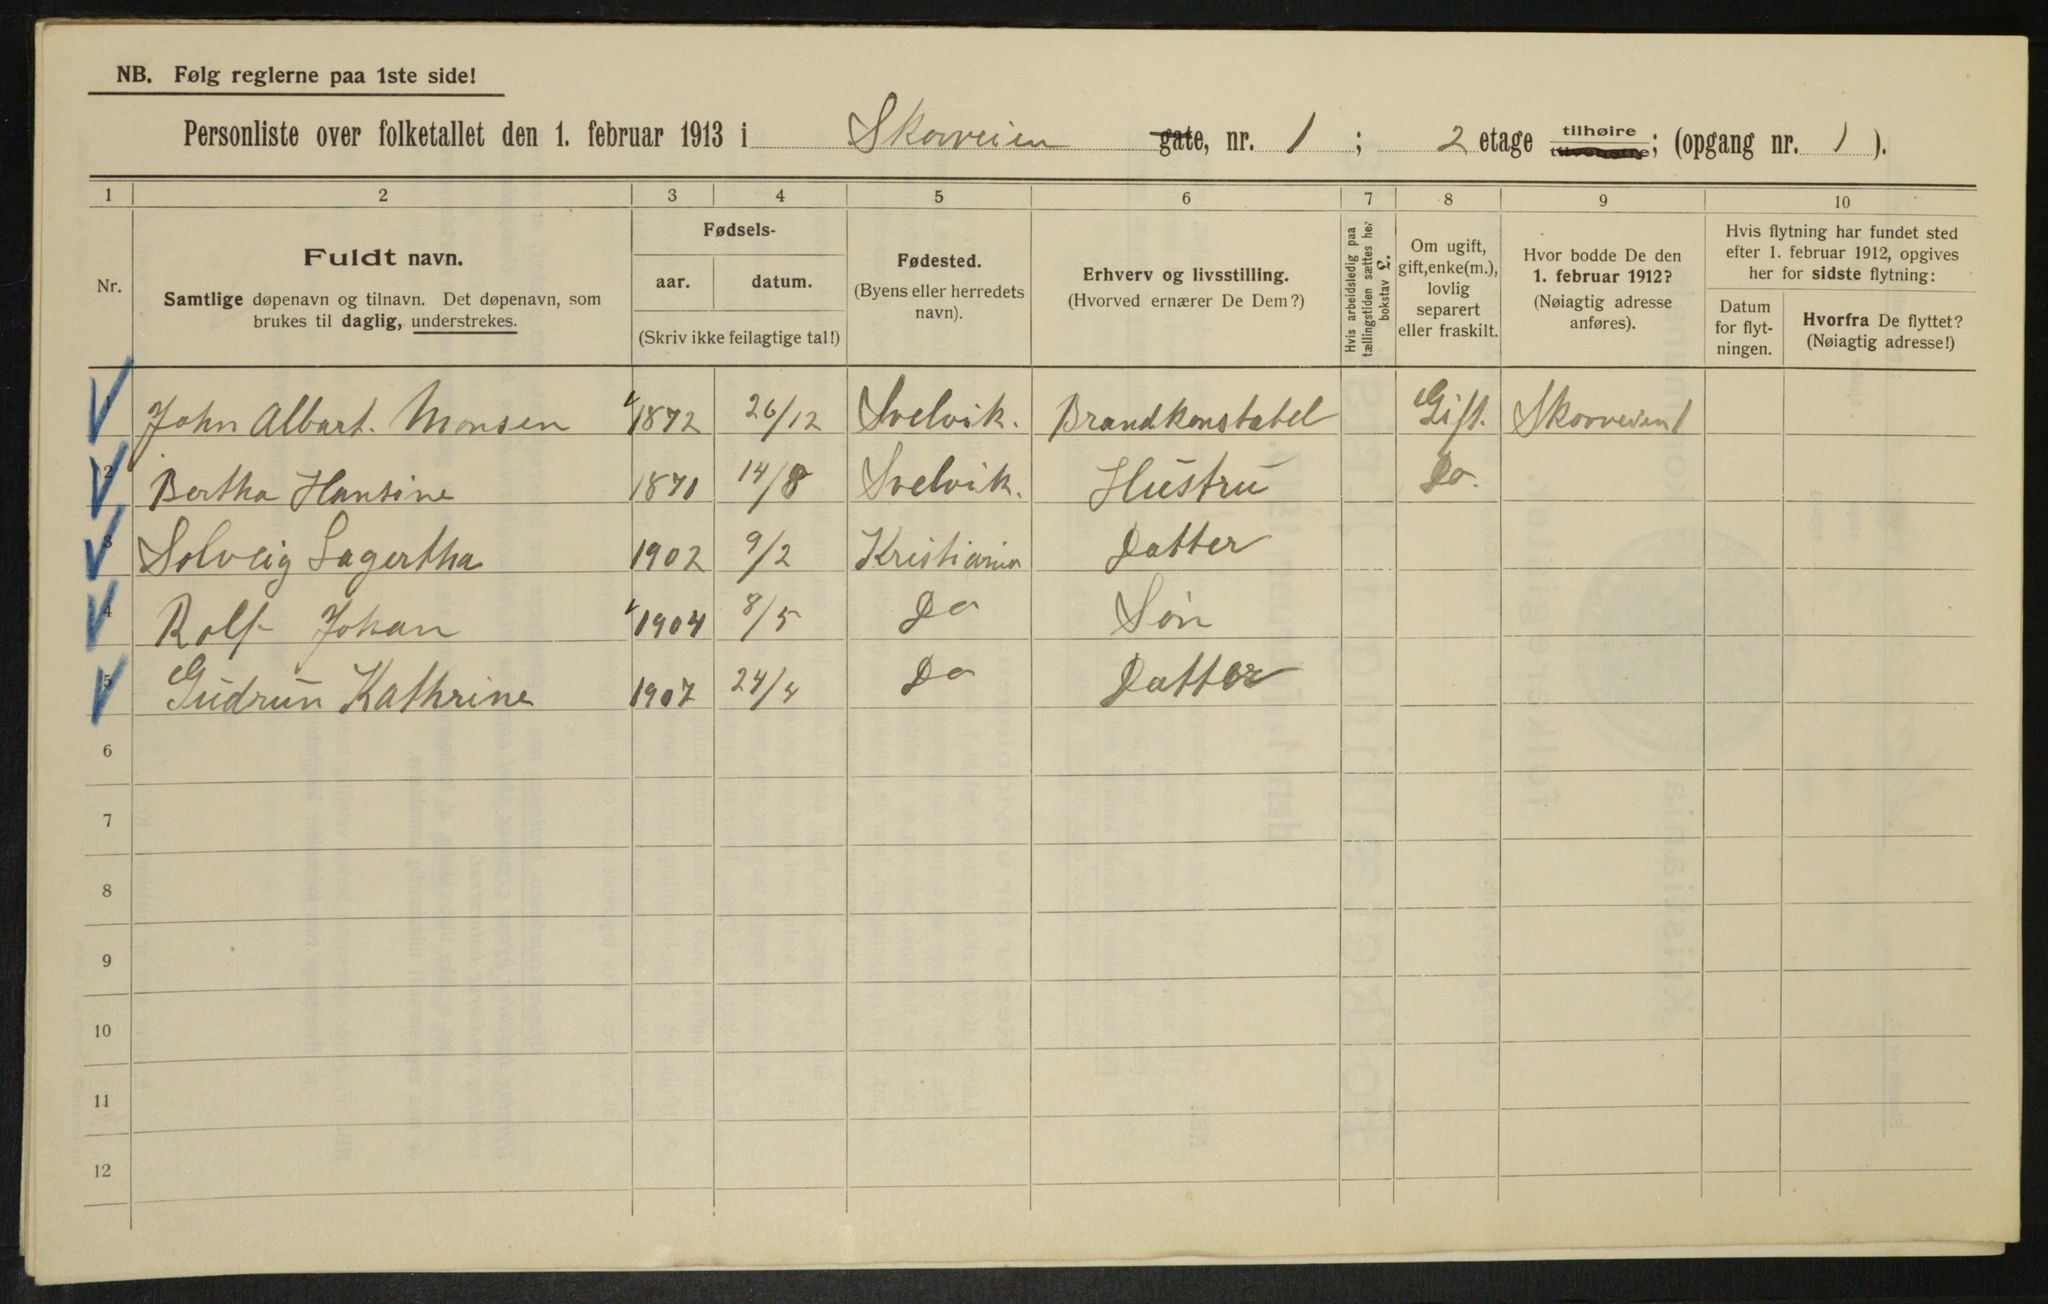 NB. Følg reglerne paa 1ste side!
Personliste over folketallet den 1. februar 1913 i Skovveien gate, nr. 1; 2 etage tilhøire tilvenstre; (opgang nr. 1).
1 2 3 4 5 6 7 8 9 10
Nr.
Fuldt navn.
Samtlige døpenavn og tilnavn. Det døpenavn, som
brukes til daglig, understrekes.
Fødsels-
aar. datum.
(Skriv ikke feilagtige tal!)
Fødested.
(Byens eller herredets
navn).
Erhverv og livsstilling.
(Hvorved ernærer De Dem?)
Hvis arbeidsledig paa
tællingstiden sættes her
bokstav L.
Om ugift,
gift, enke(m.),
lovlig
separert
eller fraskilt.
Hvor bodde De den
1. februar 1912?
(Nøiagtig adresse
anføres).
Hvis flytning har fundet sted
efter 1. februar 1912, opgives
her for sidste flytning:
Datum
for flyt-
ningen.
Hvorfra De flyttet?
(Nøiagtig adresse!)
1 John Albart. Monsen 1872 26/12 Svelvik. Brandkonstabel Gift. Skovveien 1
2 Bertha Hansine 1871 14/8 Svelvik. Hustru Do.
3 Solveig Lagertha 1902 9/2 Kristiania Datter
4 Rolf Johan 1904 8/5 Do Søn
5 Gudrun Kathrine 1907 24/4 Do Datter
6
7
8
9
10
11
12